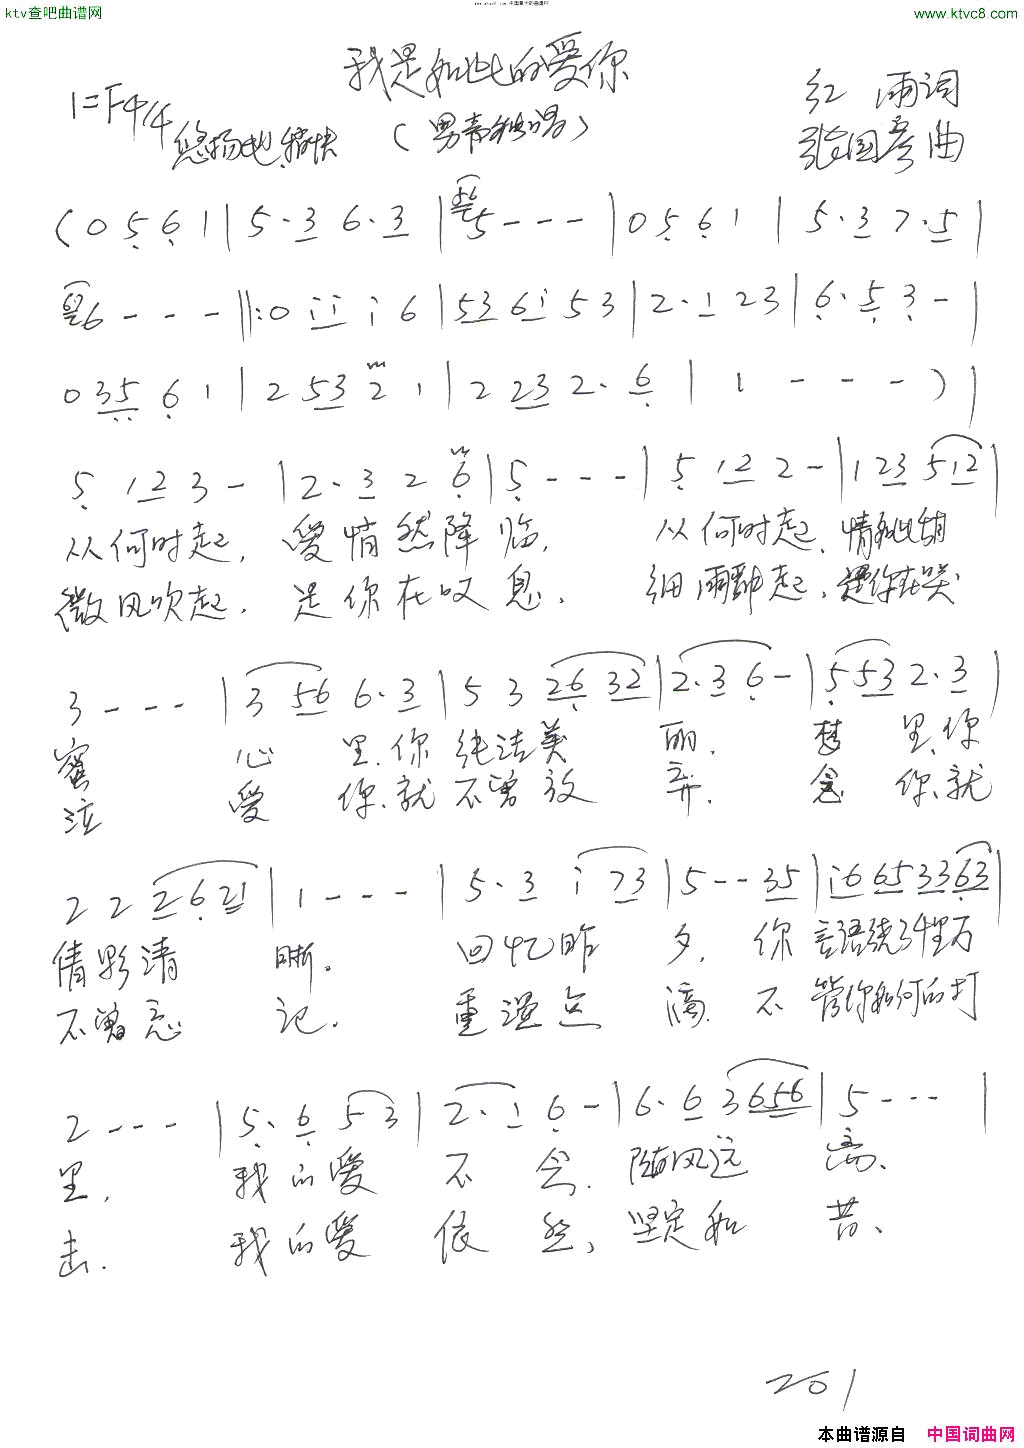 ktv查吧曲谱网
www.ktvc8.com 中国最大的曲谱网
www.ktvc8.com
我是如此的爱你
1=F4/4
悠扬地、稍快
(男高独唱)
红 雨词
张国彦曲
(0 5 6 1 | 5·3 6·3 | 5 - - - | 0 5 6 1 | 5·3 7·5 |
6 - - - ‖: 0 i i i 6 | 53 6i 5 3 | 2·1 2 3 | 6·5 3 - |
0 35 6 1 | 2 53 2 1 | 2 23 2·6 | 1 - - - ) |
5 12 3 - | 2·3 2 6 | 5 - - - | 5 12 2 - | 1 23 512 |
从何时起, 爱悄然降临, 从何时起、情如此甜
微风吹起, 是你在叹息, 细雨飘起, 是你在哭
3 - - - | 3 56 6·3 | 5 3 26 32 | 2·3 6 - | 5 53 2·3 |
蜜 心里、你纯洁美丽, 梦里、你
泣 爱你、就不曾放弃, 念你、就
2 2 2621 | 1 - - - | 5·3 i 73 | 5 - - 35 | i6 65 33 63 |
倩影清晰。 回忆昨夕, 你言语绕了千里万
不曾忘记. 重温点滴, 不管你如何的打
2 - - - | 5·6 5 3 | 2·1 6 - | 6·6 3656 | 5 - - - |
里, 我的爱不会、随风远离、
击. 我的爱依然、坚定如昔、
201
本曲谱源自 中国词曲网